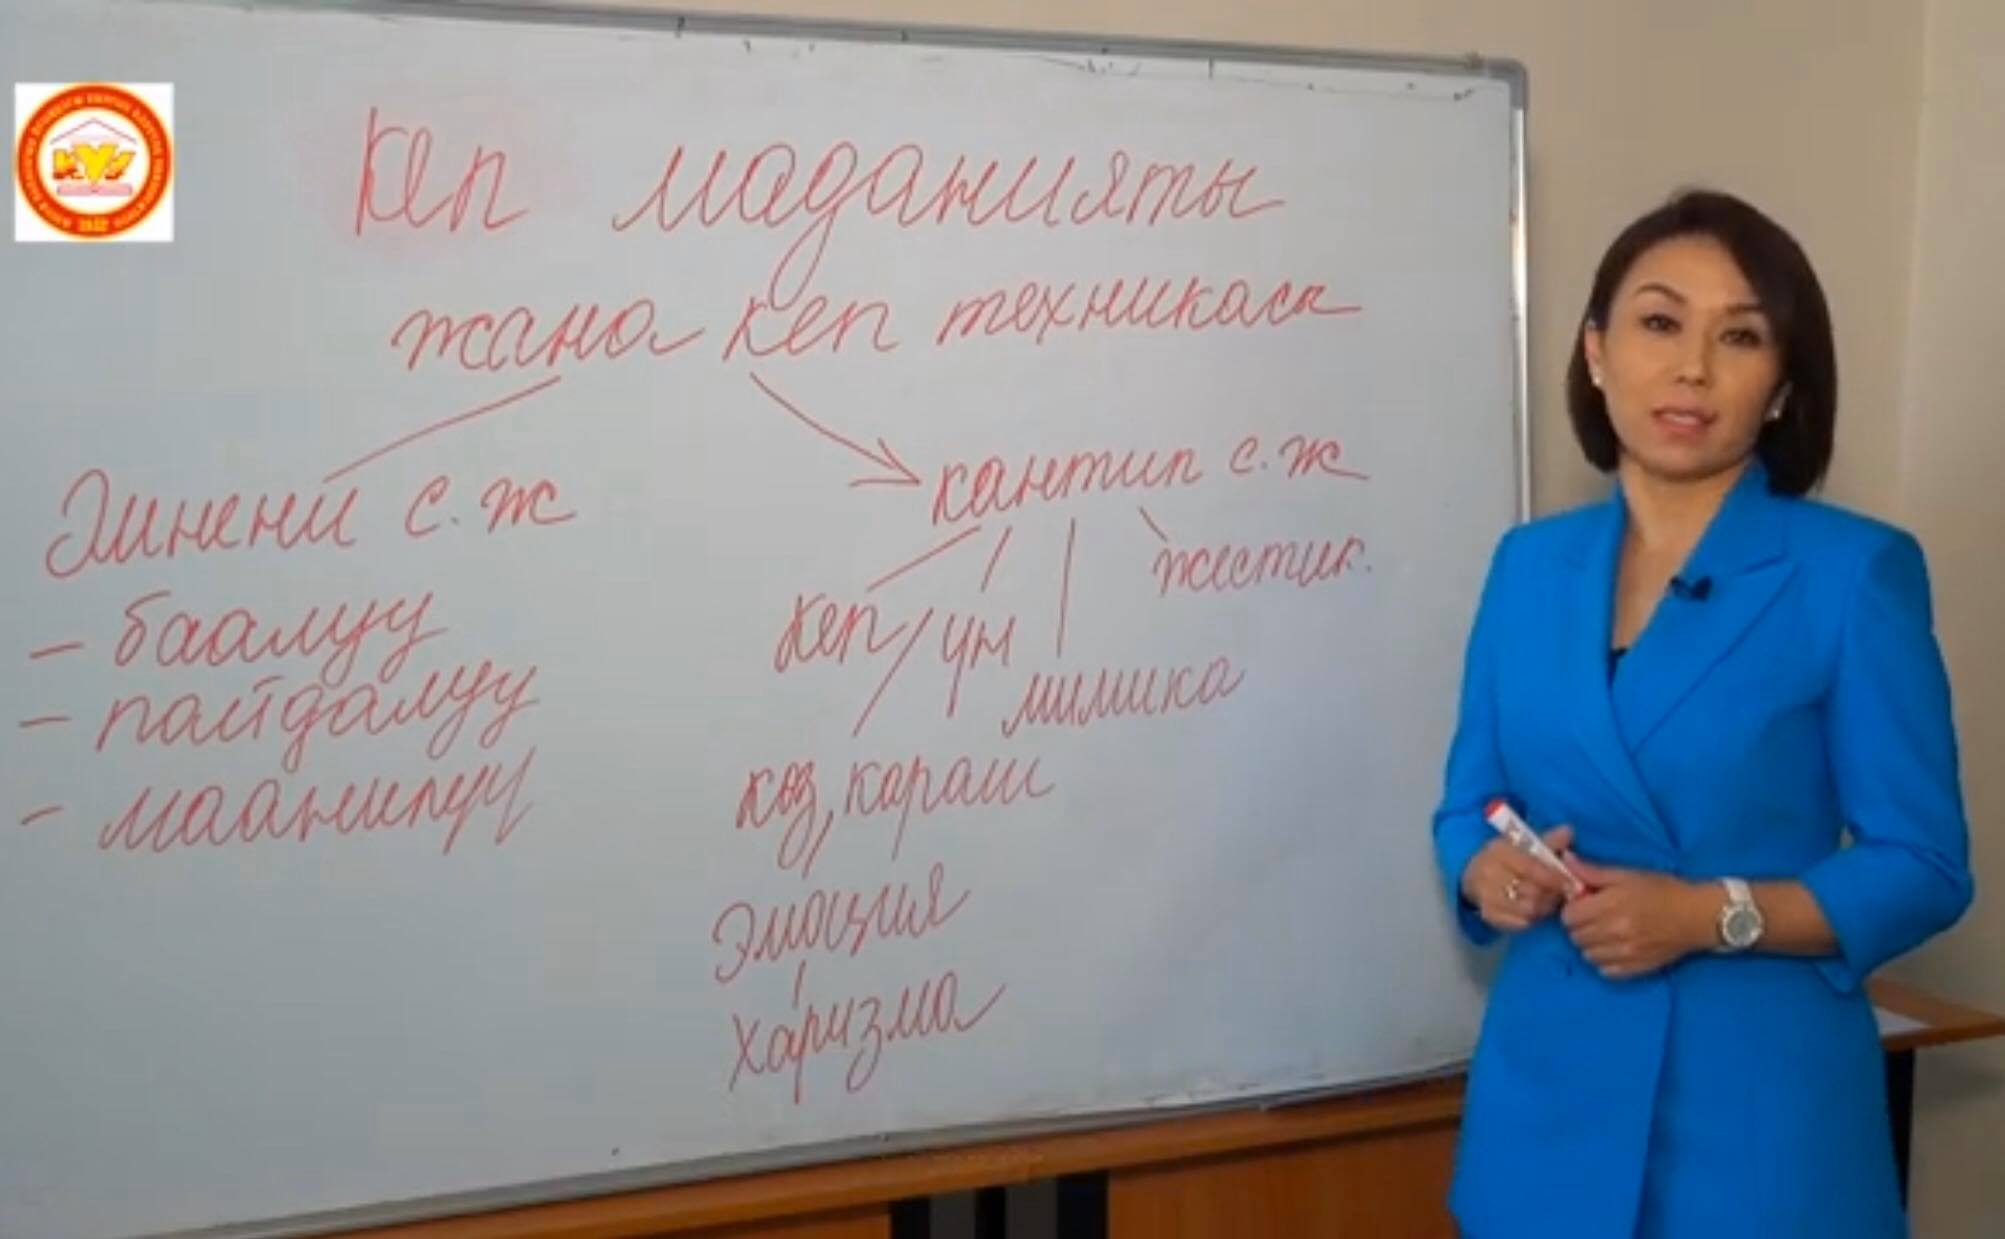 Кеп маданияты
жана кеп техникасы
Эмнени с. ж
- баалуу
- пайдалуу
- маанилүү
кантип с. ж
жестик.
кеп
үн
мимика
көз, караш
эмоция
харизма